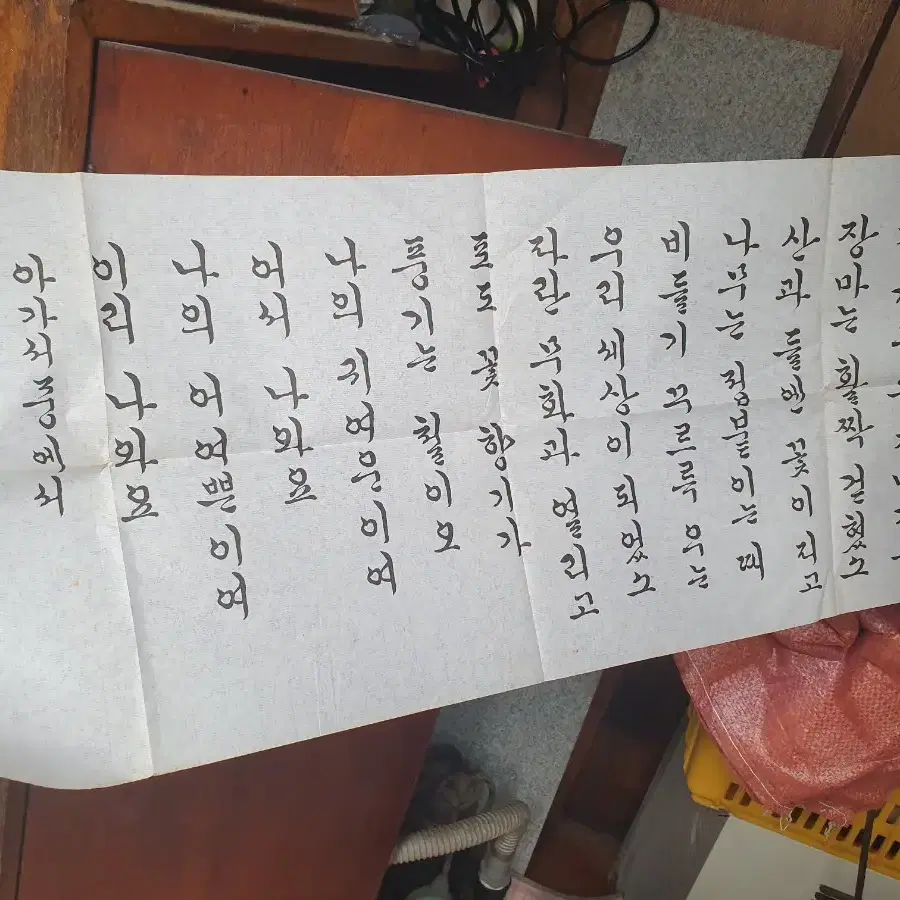 장마는 활짝 걷혔소
산과 들엔 꽃이 피고
나무는 접붙이는 때
비둘기 꾸르륵 우는
우리 세상이 되었소
파란 무화과 열리고
포도 꽃 향기가
풍기는 철이오
나의 귀여운이여
어서 나와요
나의 어여쁜이여
이리 나와요
아가서중에서